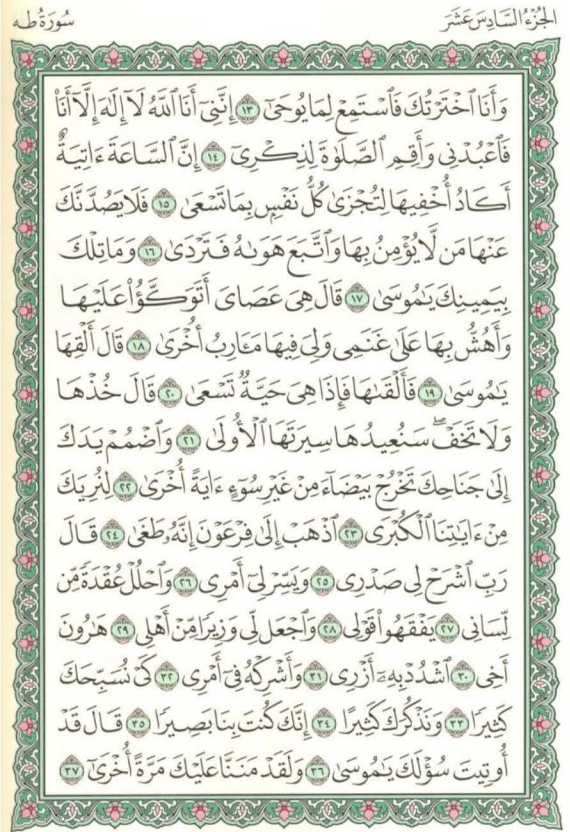 الجُزْءُ السَّادِسَ عَشَرَ
سُورَةُ طه
وَأَنَا ٱخْتَرْتُكَ فَٱسْتَمِعْ لِمَا يُوحَىٰٓ ١٣ إِنَّنِىٓ أَنَا ٱللَّهُ لَآ إِلَٰهَ إِلَّآ أَنَا۠
فَٱعْبُدْنِى وَأَقِمِ ٱلصَّلَوٰةَ لِذِكْرِىٓ ١٤ إِنَّ ٱلسَّاعَةَ ءَاتِيَةٌ
أَكَادُ أُخْفِيهَا لِتُجْزَىٰ كُلُّ نَفْسٍۭ بِمَا تَسْعَىٰ ١٥ فَلَا يَصُدَّنَّكَ
عَنْهَا مَن لَّا يُؤْمِنُ بِهَا وَٱتَّبَعَ هَوَىٰهُ فَتَرْدَىٰ ١٦ وَمَا تِلْكَ
بِيَمِينِكَ يَٰمُوسَىٰ ١٧ قَالَ هِىَ عَصَاىَ أَتَوَكَّؤُا۟ عَلَيْهَا
وَأَهُشُّ بِهَا عَلَىٰ غَنَمِى وَلِىَ فِيهَا مَـَٔارِبُ أُخْرَىٰ ١٨ قَالَ أَلْقِهَا
يَٰمُوسَىٰ ١٩ فَأَلْقَىٰهَا فَإِذَا هِىَ حَيَّةٌ تَسْعَىٰ ٢٠ قَالَ خُذْهَا
وَلَا تَخَفْ ۖ سَنُعِيدُهَا سِيرَتَهَا ٱلْأُولَىٰ ٢١ وَٱضْمُمْ يَدَكَ
إِلَىٰ جَنَاحِكَ تَخْرُجْ بَيْضَآءَ مِنْ غَيْرِ سُوٓءٍ ءَايَةً أُخْرَىٰ ٢٢ لِنُرِيَكَ
مِنْ ءَايَٰتِنَا ٱلْكُبْرَى ٢٣ ٱذْهَبْ إِلَىٰ فِرْعَوْنَ إِنَّهُۥ طَغَىٰ ٢٤ قَالَ
رَبِّ ٱشْرَحْ لِى صَدْرِى ٢٥ وَيَسِّرْ لِىٓ أَمْرِى ٢٦ وَٱحْلُلْ عُقْدَةً مِّن
لِّسَانِى ٢٧ يَفْقَهُوا۟ قَوْلِى ٢٨ وَٱجْعَل لِّى وَزِيرًا مِّنْ أَهْلِى ٢٩ هَٰرُونَ
أَخِى ٣٠ ٱشْدُدْ بِهِۦٓ أَزْرِى ٣١ وَأَشْرِكْهُ فِىٓ أَمْرِى ٣٢ كَىْ نُسَبِّحَكَ
كَثِيرًا ٣٣ وَنَذْكُرَكَ كَثِيرًا ٣٤ إِنَّكَ كُنتَ بِنَا بَصِيرًا ٣٥ قَالَ قَدْ
أُوتِيتَ سُؤْلَكَ يَٰمُوسَىٰ ٣٦ وَلَقَدْ مَنَنَّا عَلَيْكَ مَرَّةً أُخْرَىٰٓ ٣٧